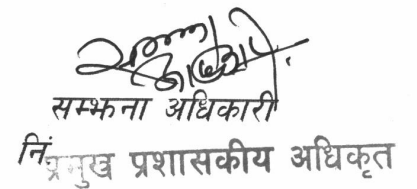 सम्झना अधिकारी
नि. प्रमुख प्रशासकीय अधिकृत